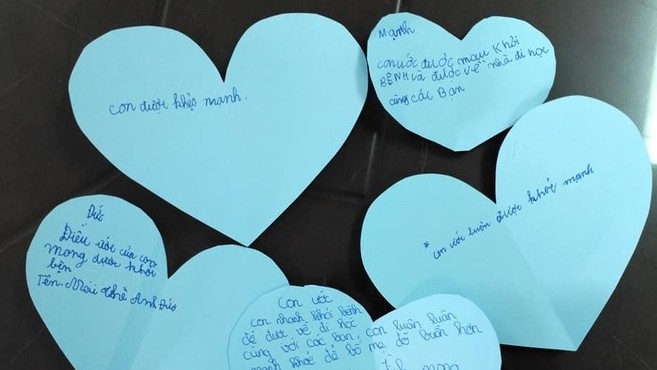 con được khỏe mạnh.
Mạnh
con ước được mau khỏi
BỆNH và được về nhà đi học
cùng các Bạn
* con ước luôn được khỏe mạnh
Đức
Điều ước của con
mong được khỏi
bện
Tên
Anh Đức
Con ước
con nhanh khỏi bệnh
để được về đi học
cùng với các bạn,
mạnh khoẻ
bố
con luôn luôn
mẹ đỡ buồn hơn
mong